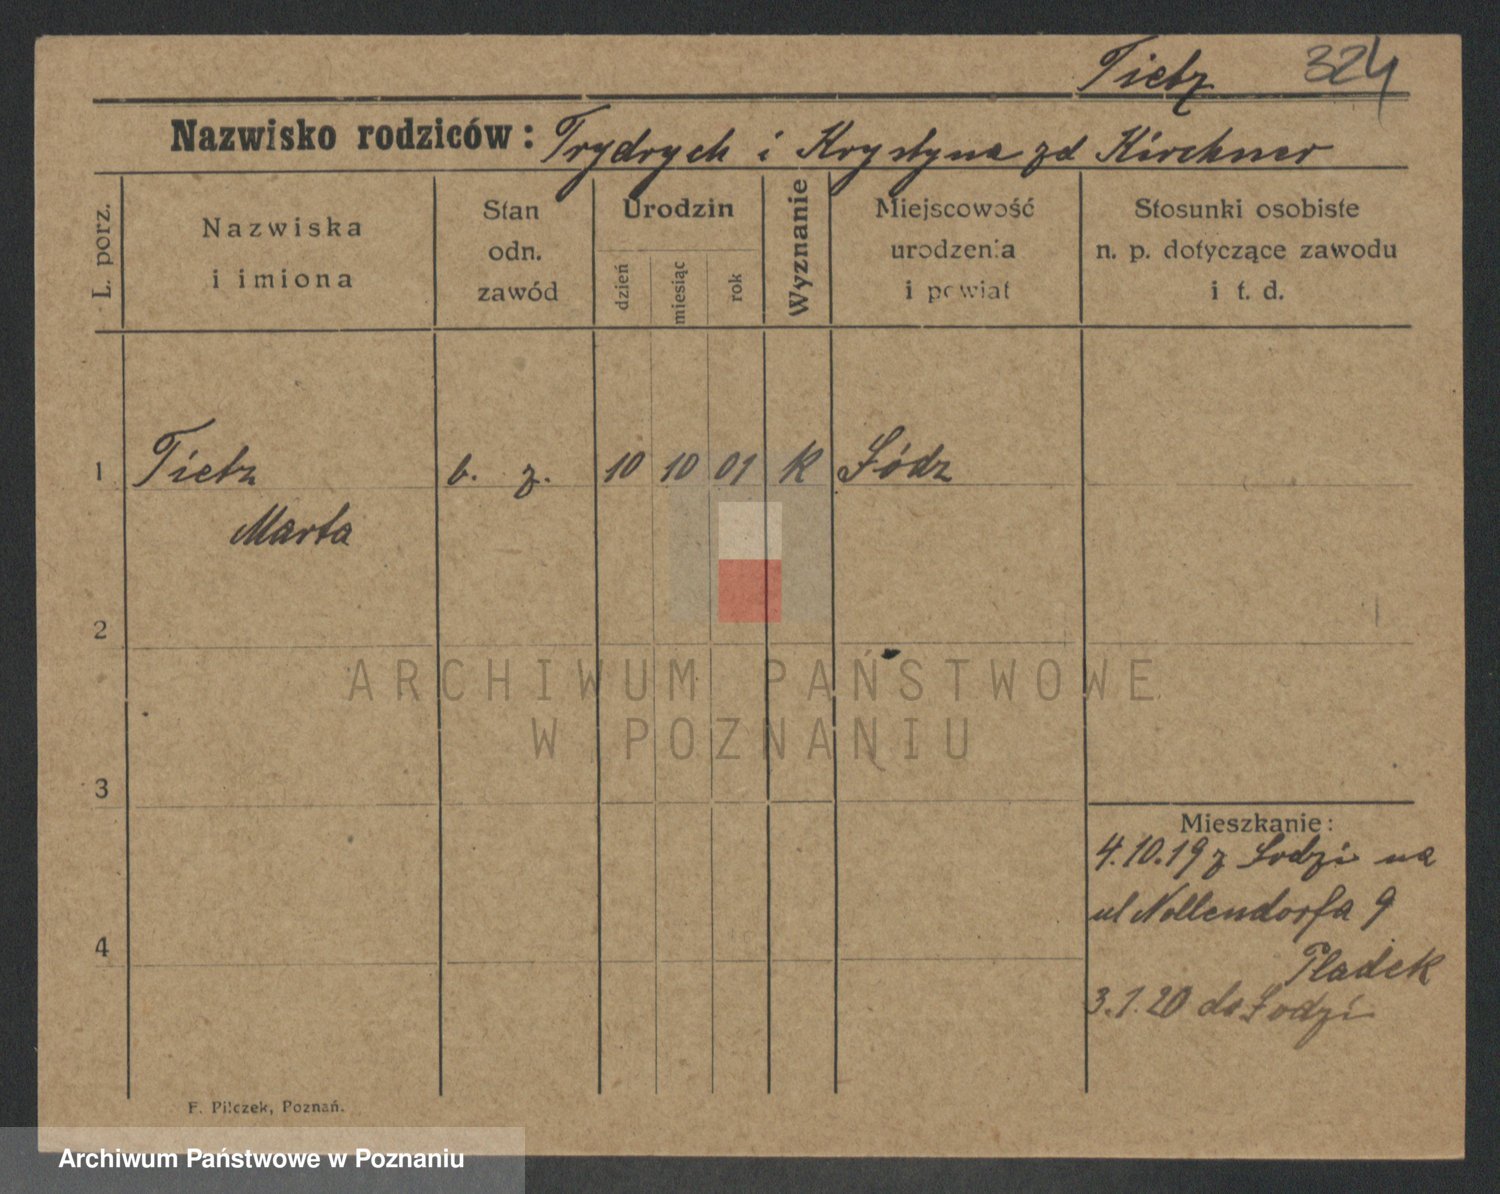 Tietz 324
Nazwisko rodziców: Frydrych i Krystyna zd Kirchner
L. porz.
Nazwiska
i imiona
Stan
odn.
zawód
Urodzin
dzień
miesiąc
rok
Wyznanie
Miejscowość
urodzenia
i powiat
Stosunki osobiste
n. p. dotyczące zawodu
i t. d.
1 Tietz b. z. 10 10 01 K Łódz
Marta
2
ARCHIWUM PAŃSTWOWE
W POZNANIU
3
Mieszkanie:
4.10.19 z Łodzi na
ul Nollendorfa 9
4
Pladek
3.1.20 do Łodzi
F. Pilczek, Poznań.
Archiwum Państwowe w Poznaniu